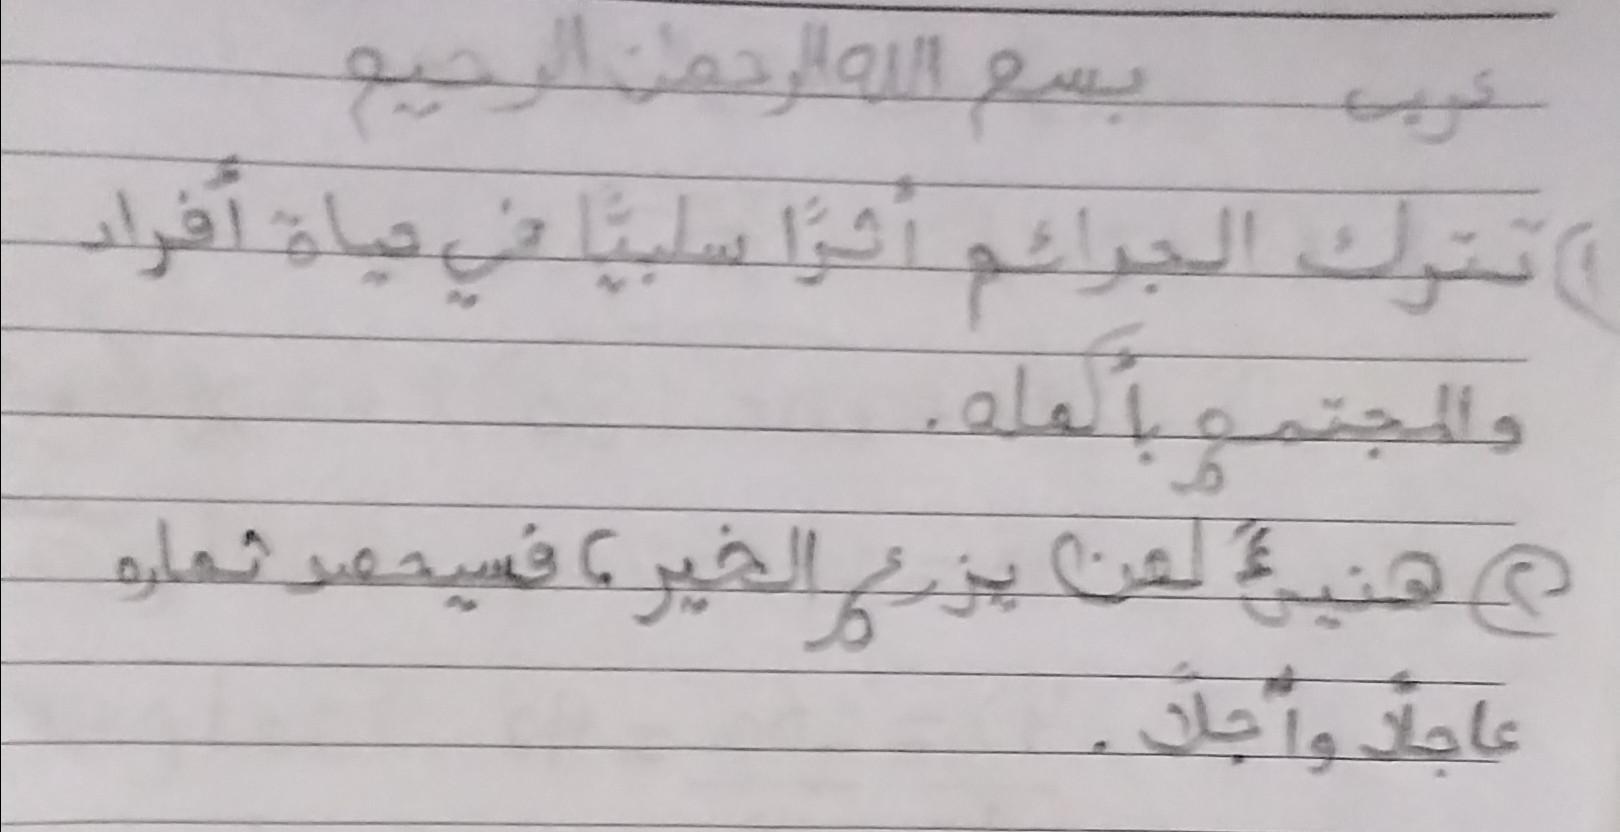 عربي بسم الله الرحمن الرحيم
١) تترك الجرائم أثرًا سلبيًا في حياة أفراد
والمجتمع بأكمله.
٢) هنيئًا لمن يزرع الخير، فسيحصد ثماره
عاجلًا وأجلًا.